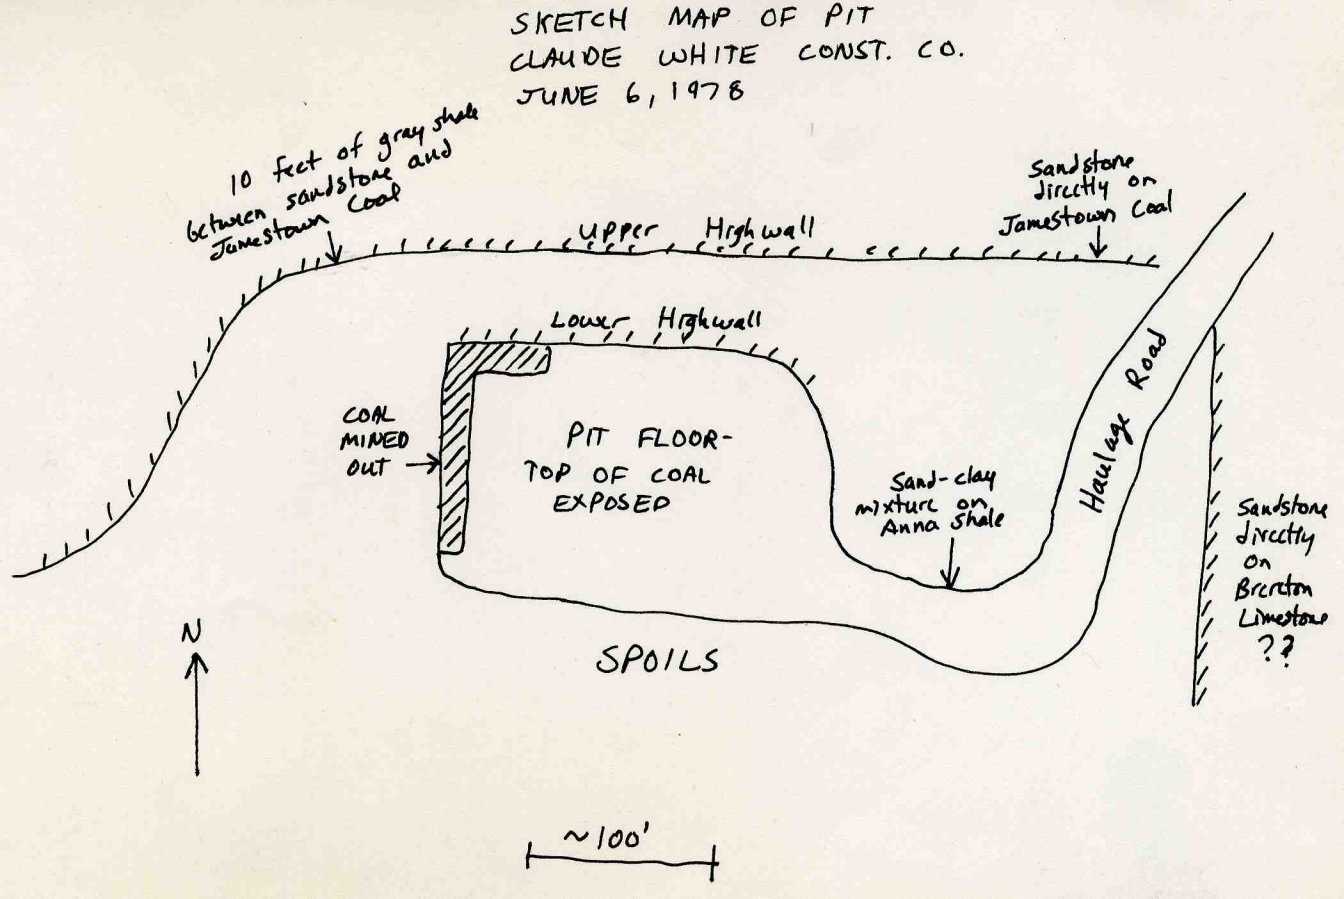 SKETCH MAP OF PIT
CLAUDE WHITE CONST. CO.
JUNE 6, 1978
10 feet of gray shale
between sandstone and
Jamestown Coal
Sandstone
directly on
Jamestown Coal
Upper Highwall
Lower Highwall
Haulage Road
COAL
MINED
OUT
PIT FLOOR-
TOP OF COAL
EXPOSED
Sand-clay
mixture on
Anna Shale
Sandstone
directly
on
Brereton
Limestone
??
N
SPOILS
~100'